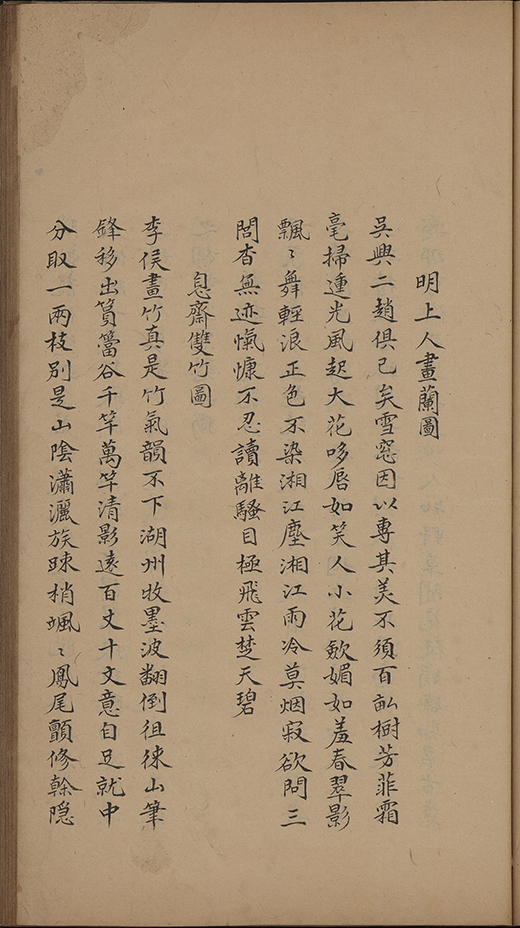 明上人畫蘭圖
吳興二趙俱已矣雪窓因以專其美不須百畝樹芳菲霜
毫掃連光風起大花哆唇如笑人小花歛媚如羞春翠影
飄〻舞輕浪正色不染湘江塵湘江雨冷莫烟寂欲問三
閭杳無迹愾慷不忍讀離騷目極飛雲楚天碧
息齋雙竹圖
李侯畫竹真是竹氣韻不下湖州牧墨波翻倒徂徠山筆
鋒移出篔簹谷千竿萬竿清影遠百丈十文意自足就中
分取一兩枝別是山陰瀟灑族踈梢颯〻鳳尾顫修榦隐